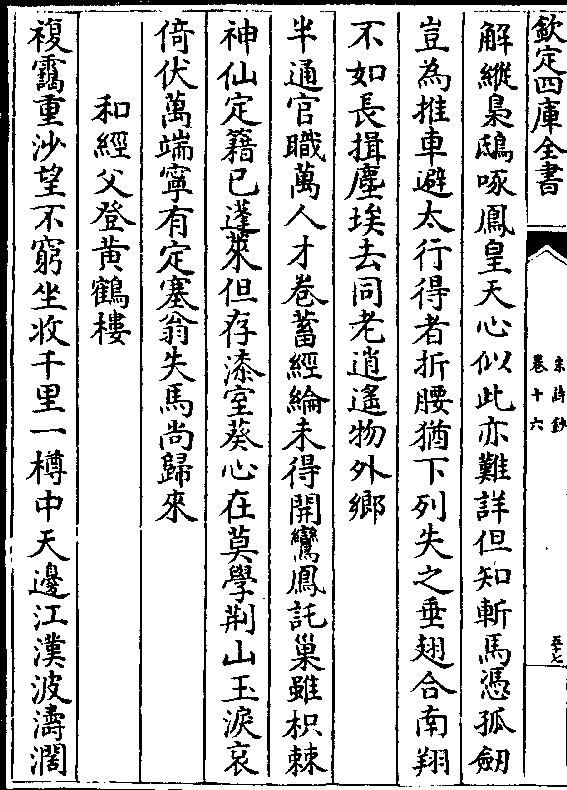 欽定四庫全書
宋詩鈔
卷十六
五十七
解縱梟鴟啄鳳皇天心似此亦難詳但知斬馬憑孤劔
豈為推車避太行得者折腰猶下列失之垂翅合南翔
不如長揖塵埃去同老逍遙物外鄉
半通官職萬人才卷蓄經綸未得開鸞鳳託巢雖枳棘
神仙定籍已蓬萊但存漆室葵心在莫學荆山玉淚哀
倚伏萬端寧有定塞翁失馬尚歸來
和經父登黄鶴樓
複靄重沙望不窮坐收千里一樽中天邊江漢波濤濶